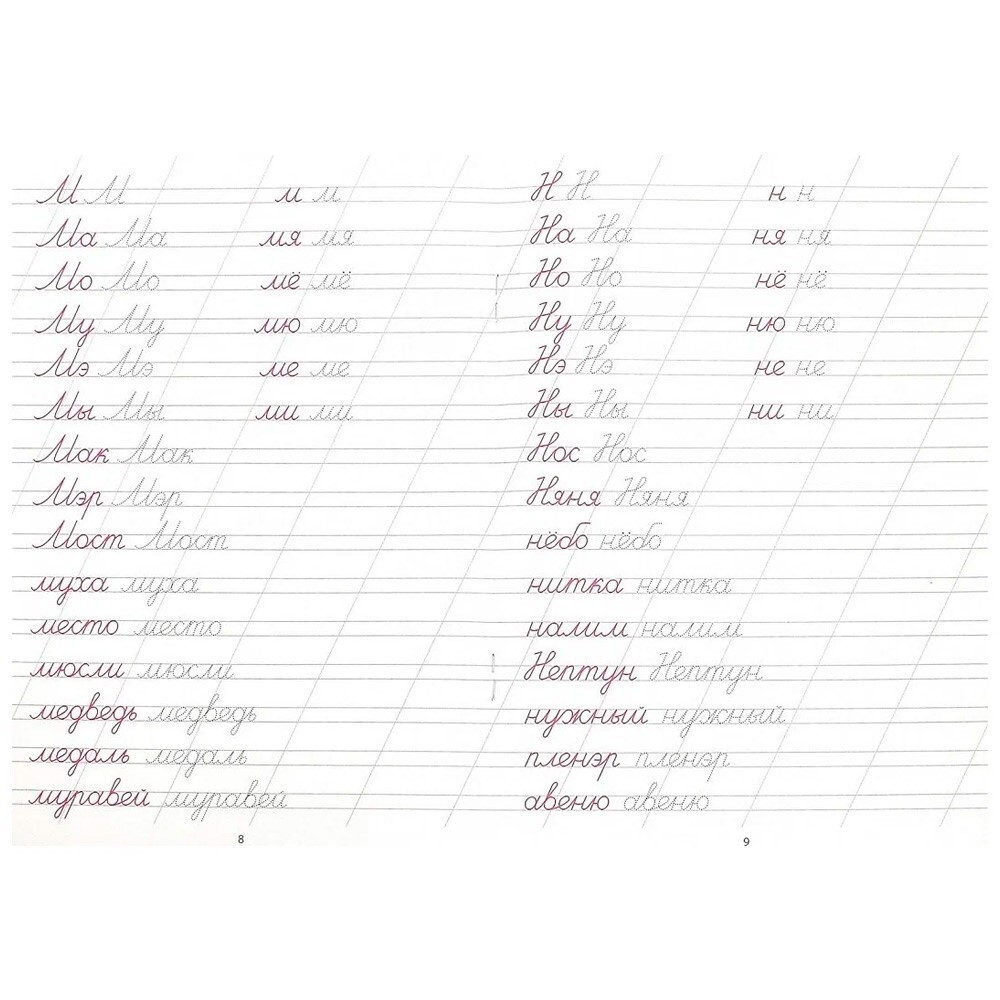 М М м м
Ма Ма мя мя
Мо Мо мё мё
Му Му мю мю
Мэ Мэ ме ме
Мы Мы ми ми
Мак Мак
Мэр Мэр
Мост Мост
муха муха
место место
мюсли мюсли
медведь медведь
медаль медаль
муравей муравей
8
Н Н н н
На На ня ня
Но Но нё нё
Ну Ну ню ню
Нэ Нэ не не
Ны Ны ни ни
Нос Нос
Няня Няня
нёбо нёбо
нитка нитка
налим налим
Нептун Нептун
нужный нужный
пленэр пленэр
авеню авеню
9